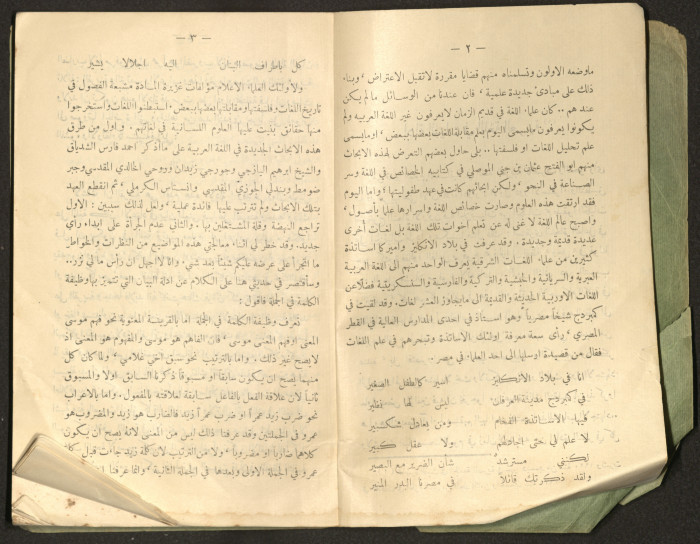 — ٢ —
ما وضعه الاولون وتسلمناه منهم قضايا مقررة لا تقبل الاعتراض ، وبناء
ذلك على مبادئ جديدة علمية ، فان عندنا من الوسائل ما لم يكن
عندهم .. كان علماء اللغة في قديم الزمان لا يعرفون غير اللغة العربيه ولم
يكونوا يعرفون ما يسمى اليوم بعلم مقابلة اللغات بعضها ببعض ، او ما يسمى
علم تحليل اللغات او فلسفتها .. بلى حاول بعضهم التعرض لهذه الابحاث
منهم ابو الفتيح عثمان بن جني الموصلي في كتابيه الخصائص في اللغة وسر
الصناعة في النحو ، ولكن ابحاثهم كانت في عهد طفوليتها ؛ واما اليوم
فقد ارتقت هذه العلوم وصارت خصائص اللغة واسرارها علماً بأصول ،
واصبح عالم اللغة لا غنى له عن تعلم اخوات تلك اللغة بل لغات أخرى
عديدة قديمة وجديدة . وقد عرفت في بلاد الانكليز واميركا اساتذة
كثيرين من علماء اللغات الشرقية يعرف الواحد منهم الى اللغة العربية
العبرية والسريانية والحبشية والتركية والفارسية والسنسكريتية فضلاً عن
اللغات الاوربية الحديثة والقديمة الى ما يجاوز العشر لغات . وقد لقيت في
كمبردج شيخاً مصرياً هو استاذ في احدى المدارس العالية في القطر
المصري ، رأى سعة معرفة اولئك الاساتذة وتبحرهم في علم اللغات
فقال من قصيدة ارسلها الى احد العلماء في مصر .
انا في بلاد الانكليز اسير كالطفل الصغير
في كمبردج مدينة العرفان ليس لها نظير
كليها الاساتذة الفخام ومن يعادل شكسبير
لا علم لي حتى اجادلهم ولا عقل كبير
لكنني مسترشد شأن الضرير مع البصير
ولقد ذكرتك قائلاً في مصرنا البدر المنير
— ٣ —
كل باطراف البنان اليه اجلالا يشير
ولاولئك العلماء الاعلام مؤلفات غزيرة المادة مشبعة الفصول في
تاريخ اللغات وفلسفتها ومقابلتها بعضها ببعض ، استنبطوا اللغات واستخرجوا
منها حقائق بنيت عليها العلوم اللسانية في لغاتهم . واول من طرق
هذه الابحاث الجديدة في اللغة العربية على ما اذكر احمد فارس الشدياق
والشيخ ابرهيم اليازجي وجورجي زيدان وروحي الخالدي المقدسي وجبر
ضومط وبندلي الجوزي المقدسي وانستاس الكرملي ، ثم انقطع العهد
بتلك الابحاث ولم تترتب عليها فائدة عملية ، ولعل لذلك سببين : الاول
تراجع النهضة وقلة المشتغلين بها . والثاني عدم الجرأة على ابداء رأي
جديد . وقد خطر لي اثناء معالجتي هذه المواضيع من النظرات والخواطر
ما اتجرأ على عرضه عليكم شيئاً بعد شيء ، وانا لا اجهل ان رأس مالي نزر ..
وسأقتصر في حديثي هذا على الكلام عن ادلة البيان التي تتميز بها وظيفة
الكلمة في الجملة فاقول :
تعرف وظيفة الكلمة في الجملة اما بالقرينة المعنوية نحو فهم موسى
المعنى او فهم المعنى موسى ، فان الفاهم هو موسى والمفهوم هو المعنى اذ
لا يصح غير ذلك ، واما بالترتيب نحو سبق اخي غلامي ، ولما كان كل
منهما يصح ان يكون سابقاً او مسبوقاً ذكرنا السابق اولا والمسبوق
ثانياً لان علاقة الفعل بالفاعل سابقة لعلاقته بالمفعول . واما بالاعراب
نحو ضرب زيد عمراً او ضرب عمراً زيد فالضارب هو زيد والمضروب هو
عمرو في الجملتين وقد عرفنا ذلك ليس من المعنى لانه يصح ان يكون
كلاهما ضارباً او مضروباً ، ولا من الترتيب لان كلمة زيد جاءت قبل كلمة
عمرو في الجملة الاولى وبعدها في الجملة الثانية ، وانما عرفنا